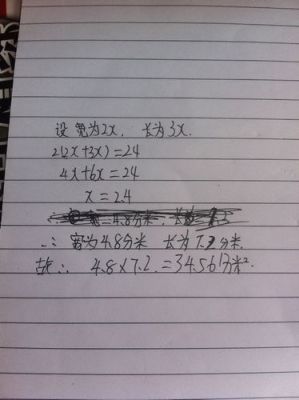 设宽为2x,长为3x.
2(2x+3x)=24
4x+6x=24
x=2.4
∴宽为4.8分米 长为7.2分米.
故∴4.8×7.2=34.56分米².